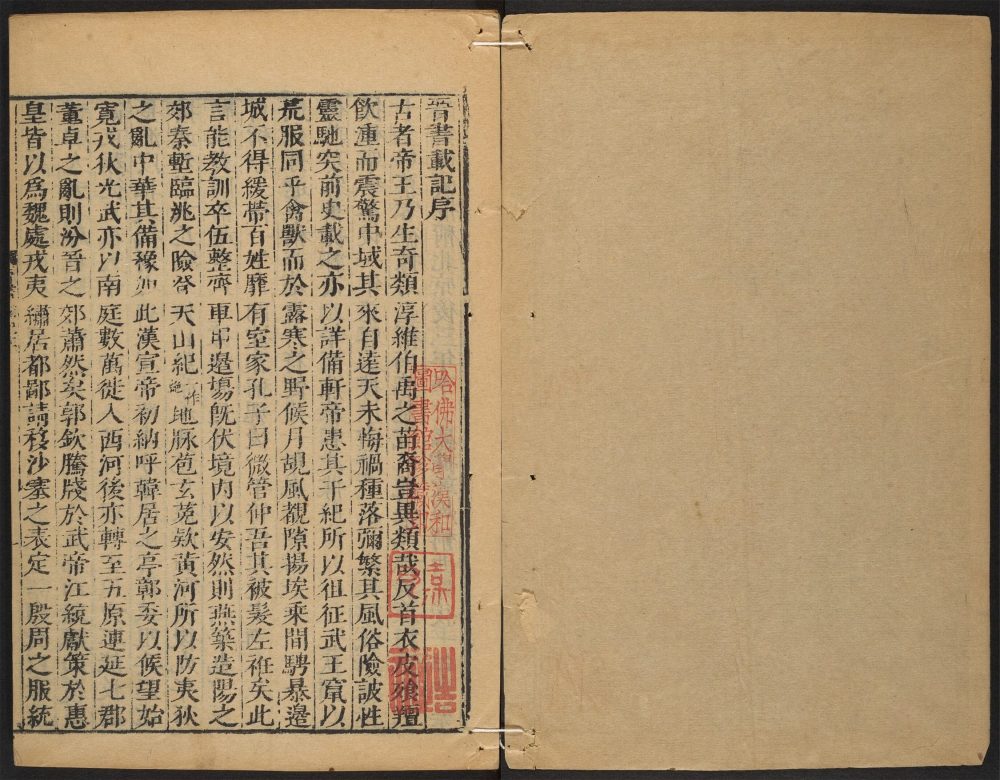 晉書載記序
古者帝王乃生奇類淳維伯禹之苗裔豈異類哉反首衣皮飱羶
飲湩而震驚中域其來自遠天未悔禍種落彌繁其風俗險詖性
靈馳突前史載之亦以詳備軒帝患其干紀所以徂征武王竄以
荒服同乎禽獸而於露寒之野候月覘風覩隙揚埃乘間騁暴邊
城不得緩帶百姓靡有室家孔子曰微管仲吾其被髮左袵矣此
言能教訓卒伍整齊車甲邊塲旣伏境内以安然則燕築造陽之
郊秦塹臨洮之險登天山紀一作絶地脉苞玄菟欵黄河所以防夷狄
之亂中華其備豫如此漢宣帝初納呼韓居之亭鄣委以候望始
寛戎狄光武亦以南庭數萬徙入西河後亦轉至五原連延七郡
董卓之亂則汾晉之郊蕭然矣郭欽騰牋於武帝江統獻策於惠
皇皆以爲魏處戎夷繡居都鄙請移沙塞之表定一殷周之服統
哈佛大學漢和
圖書館珍藏印